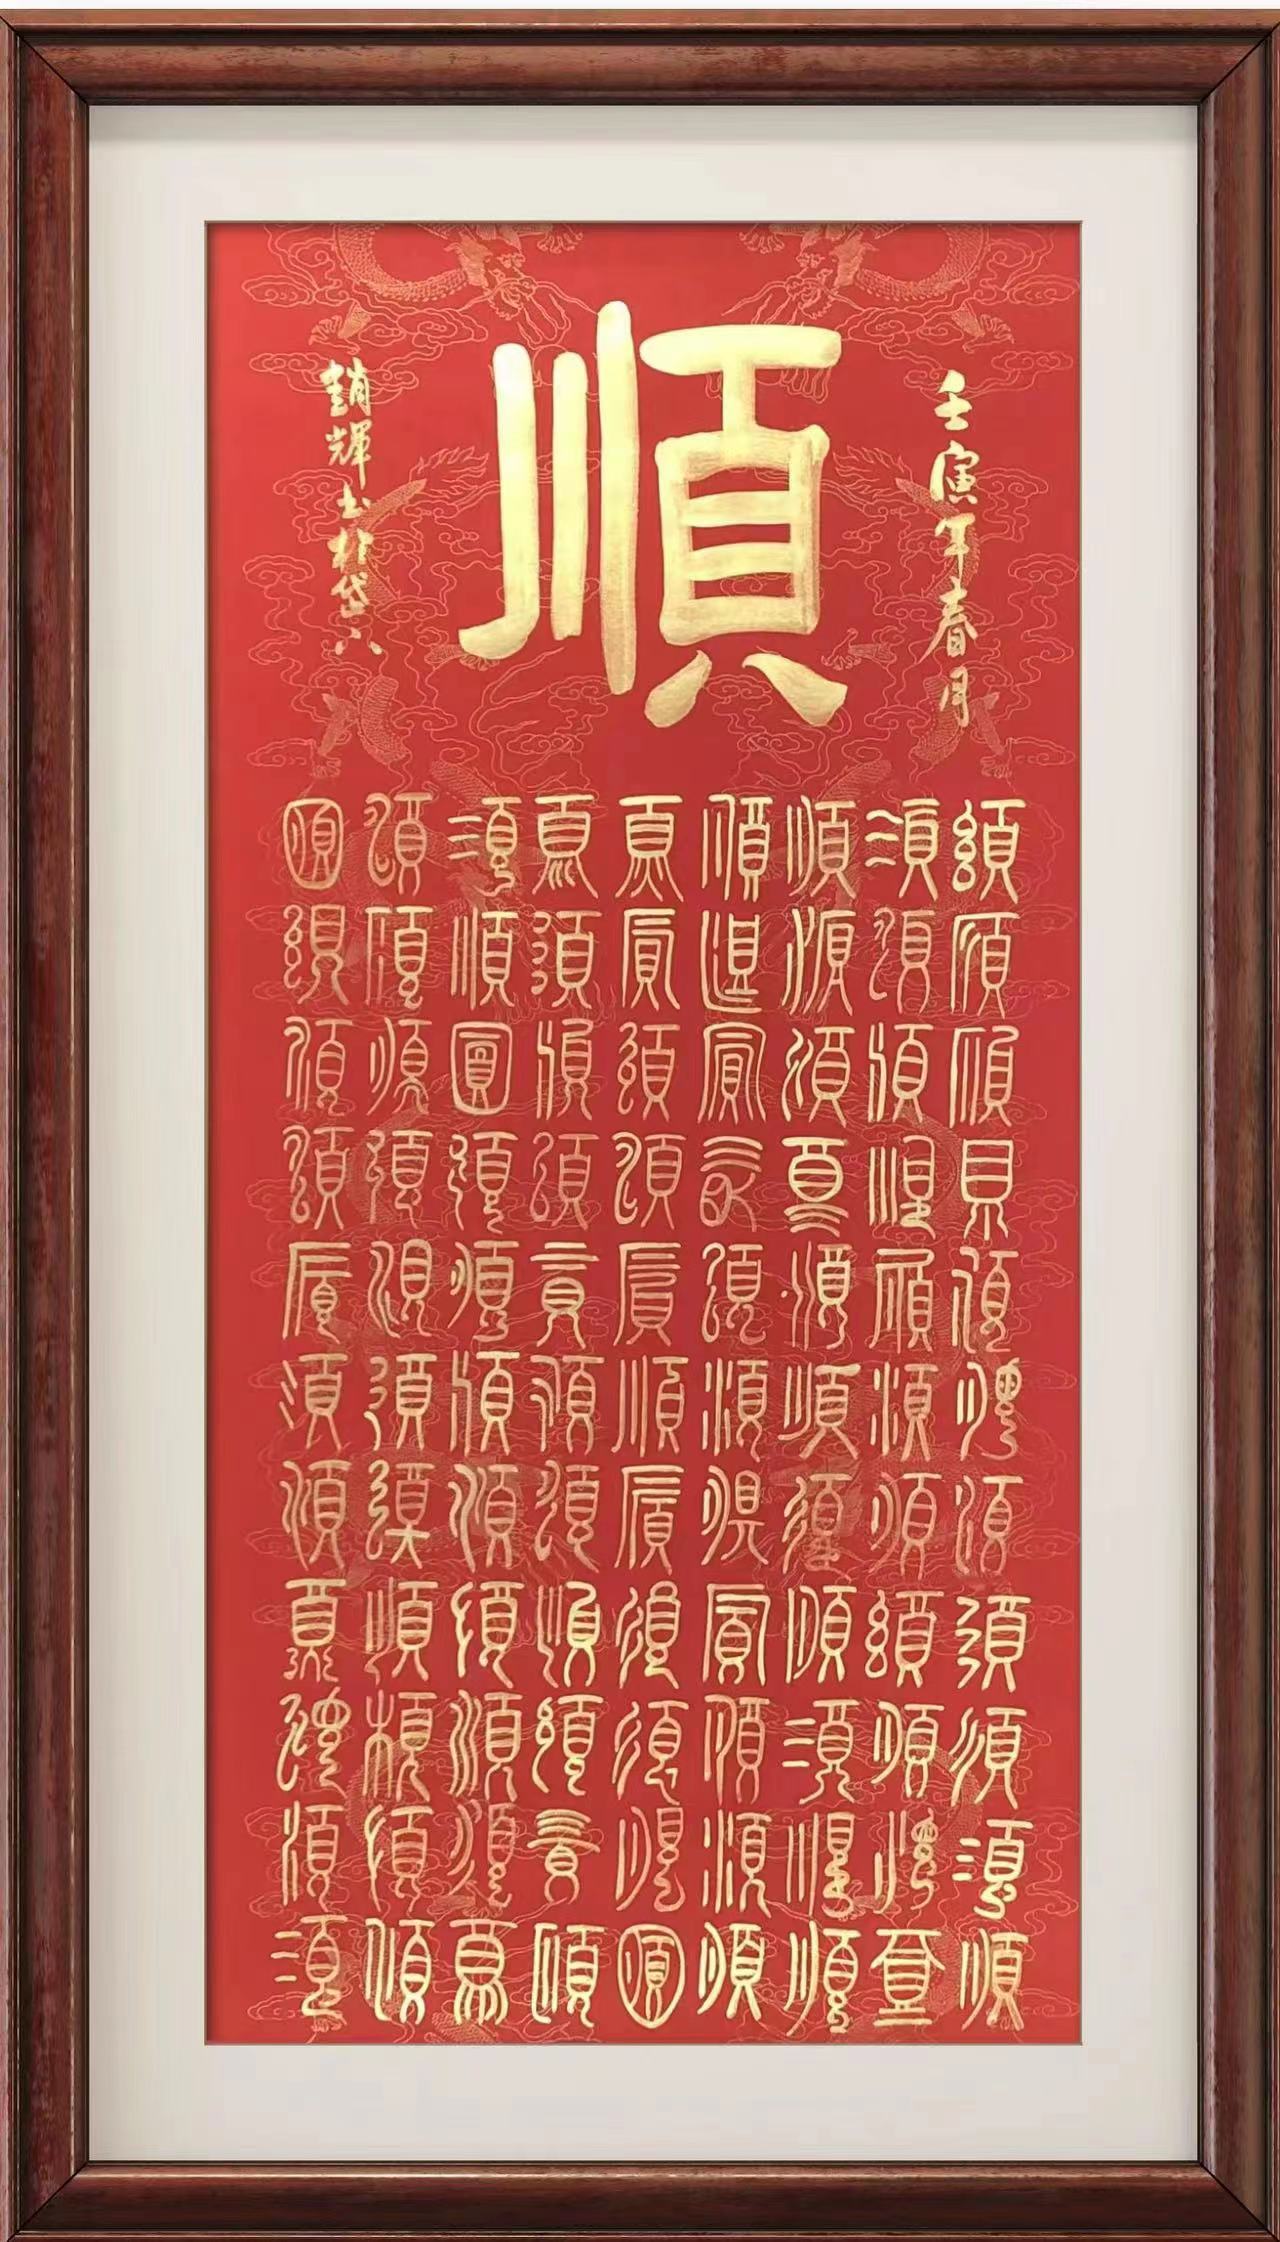 壬寅年春月
順
趙輝书於岱
順順順順順順順順順順順
順順順順順順順順順順順
順順順順順順順順順順順
順順順順順順順順順順順
順順順順順順順順順順順
順順順順順順順順順順順
順順順順順順順順順順順
順順順順順順順順順順順
順順順順順順順順順順順